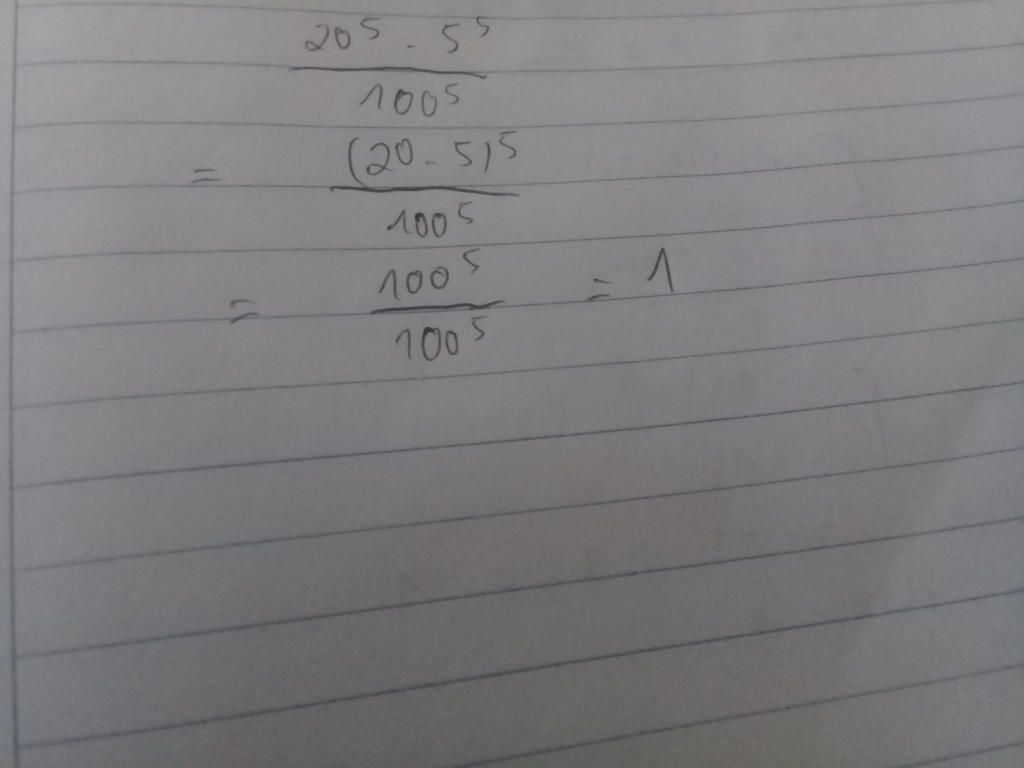 20⁵ · 5⁵
100⁵
= (20 · 5)⁵
100⁵
= 100⁵ = 1
100⁵